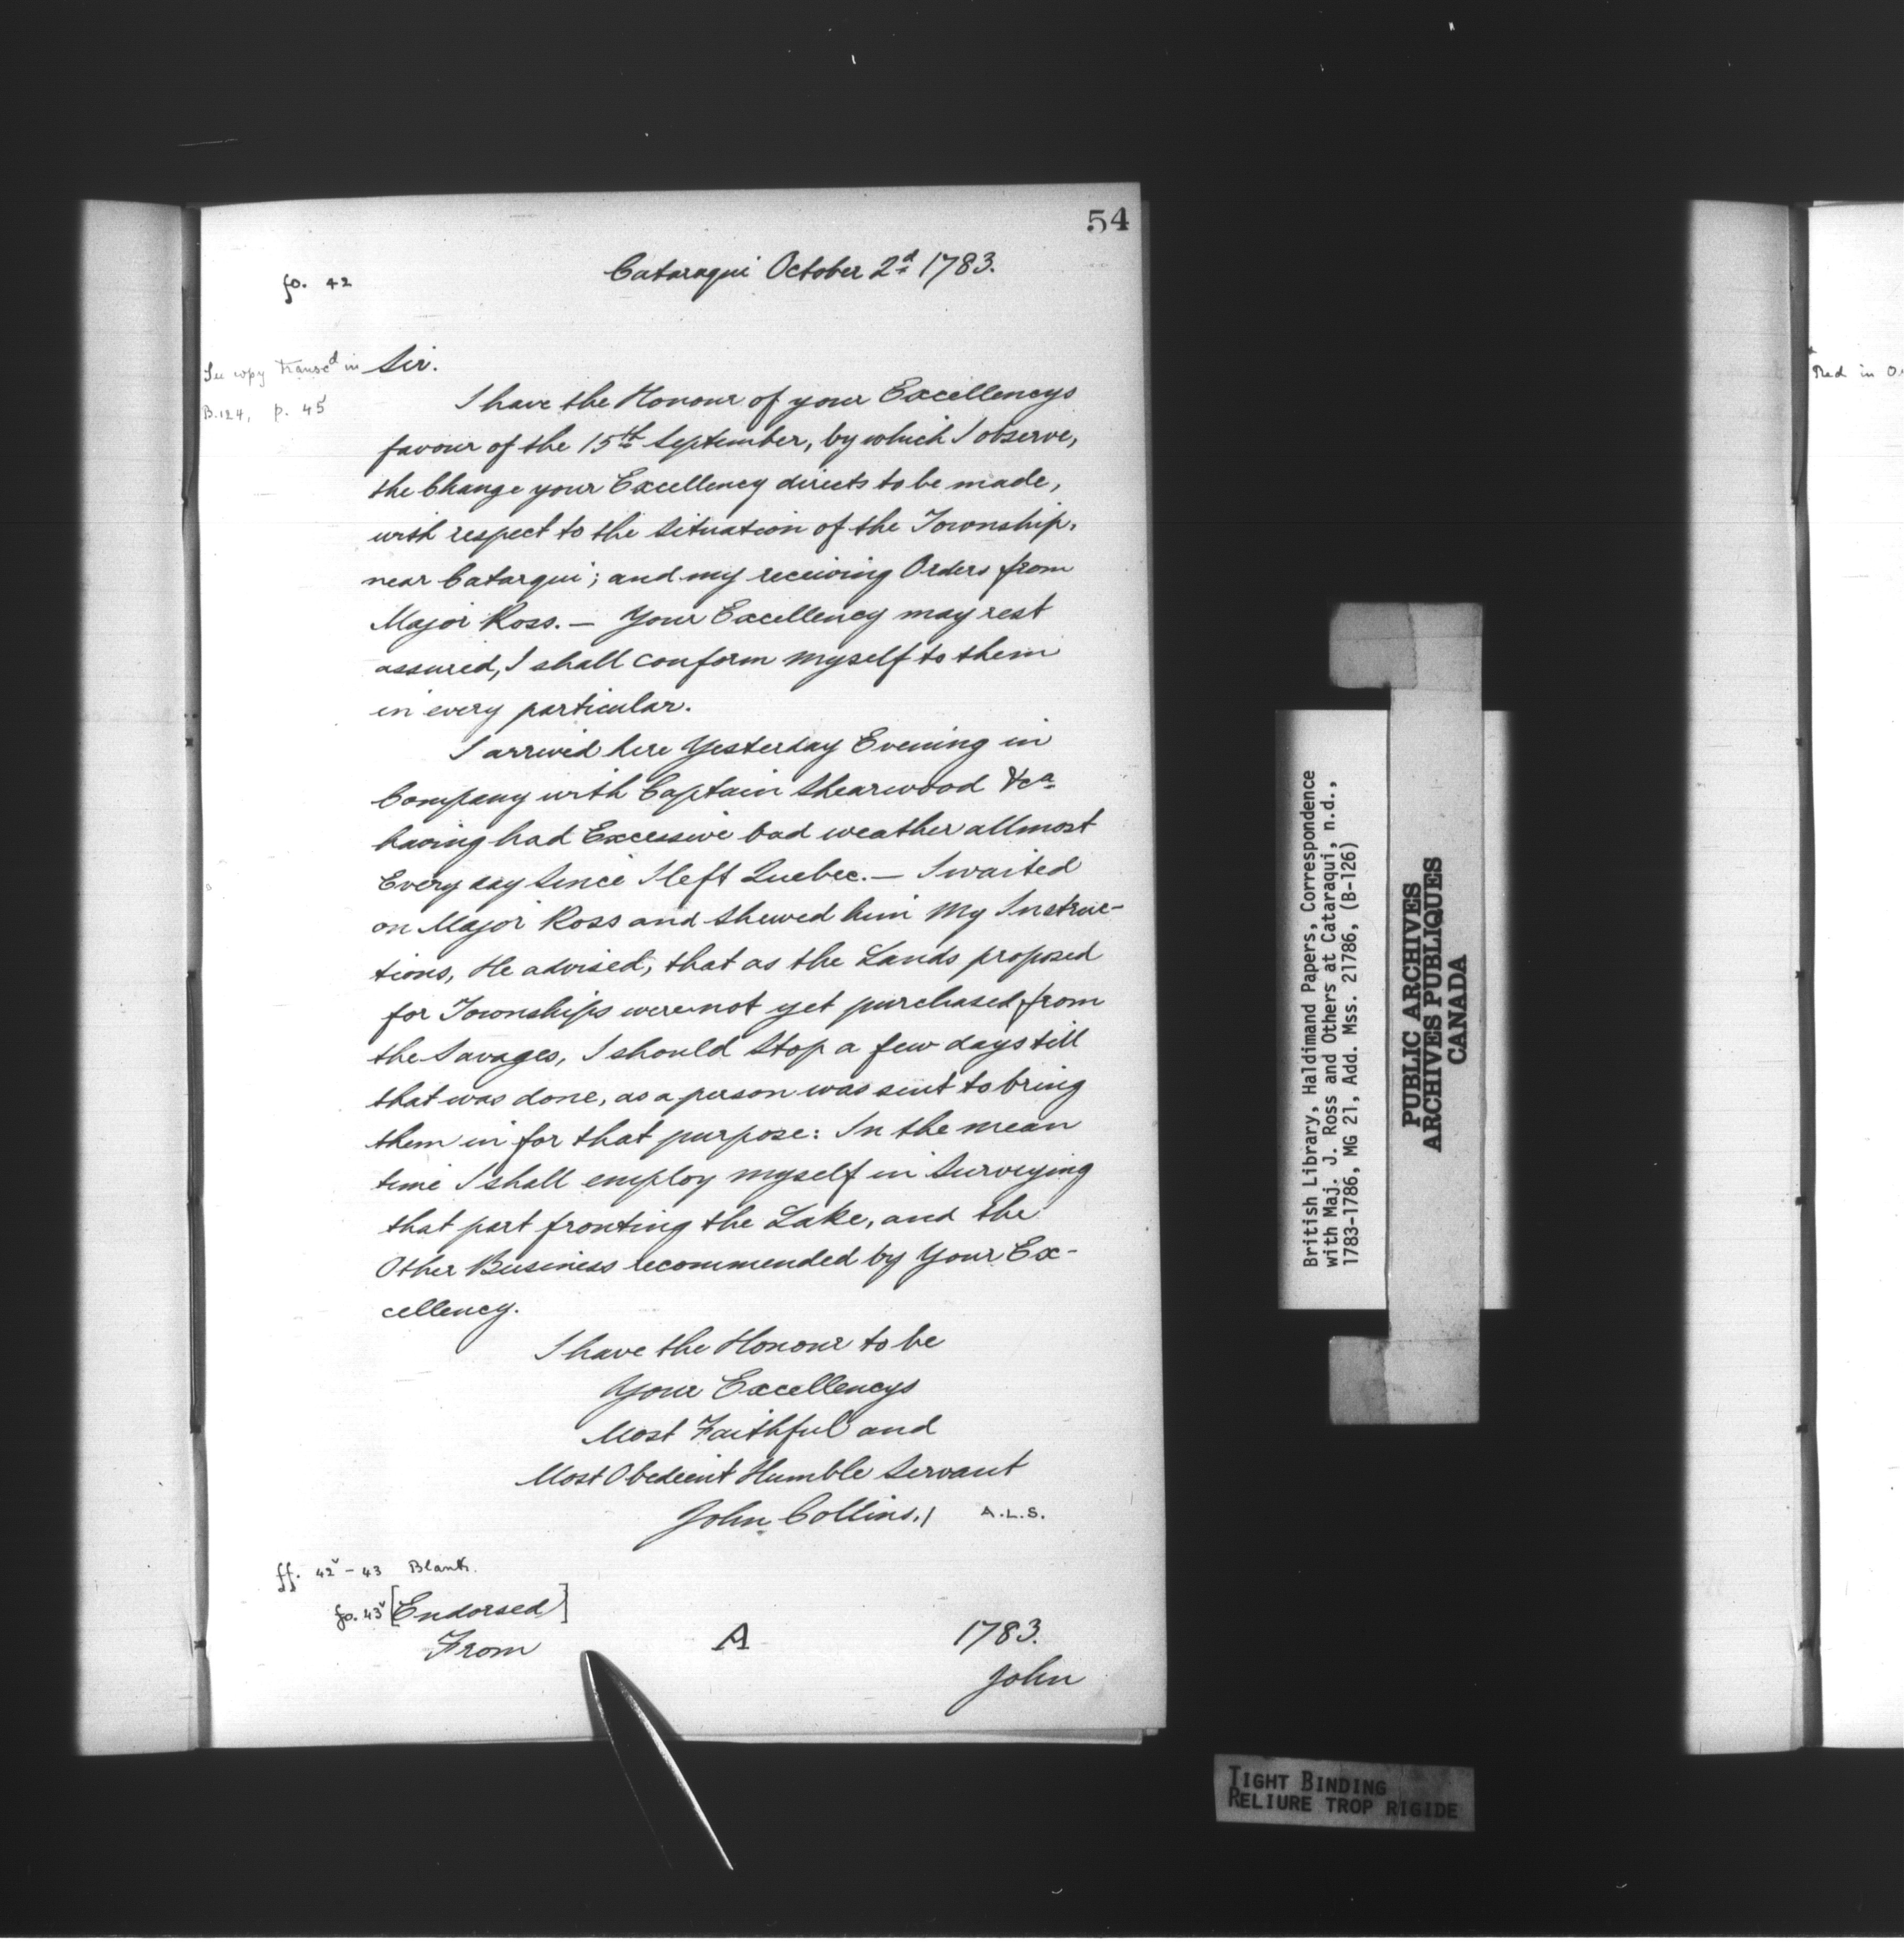 54
fo. 42
Cataraqui October 2d 1783.
See copy transcd in
B.124, p. 45
Sir.
I have the Honour of your Excellencys
favour of the 15th September, by which I observe,
the Change your Excellency directs to be made,
with respect to the Situation of the Township,
near Catarqui; and my receiving Orders from
Major Ross. — Your Excellency may rest
assured, I shall conform myself to them
in every particular.
I arrived here Yesterday Evening in
Company with Captain Shearwood &ca
having had Excessive bad weather allmost
Every day Since I left Quebec. — I waited
on Major Ross and shewed him My Instruc-
tions, He advised, that as the Lands proposed
for Townships were not yet purchased from
the Savages, I should Stop a few days till
that was done, as a person was sent to bring
them in for that purpose: In the mean
time I shall employ myself in Surveying
that part fronting the Lake, and the
Other Business recommended by Your Ex-
cellency.
I have the Honour to be
Your Excellencys
Most Faithful and
Most Obedient Humble Servant
John Collins./ A.L.S.
ff. 42v - 43 Blank.
fo. 43v [Endorsed]
From A 1783.
John
British Library, Haldimand Papers, Correspondence
with Maj. J. Ross and Others at Cataraqui, n.d.,
1783-1786, MG 21, Add. Mss. 21786, (B-126)
PUBLIC ARCHIVES
ARCHIVES PUBLIQUES
CANADA
TIGHT BINDING
RELIURE TROP RIGIDE